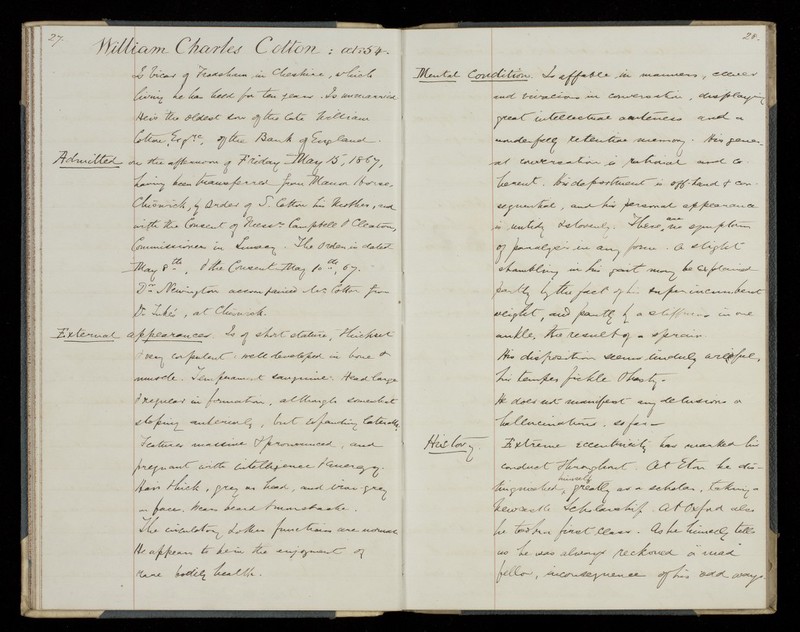 27.
William Charles Cotton : aet. 54.
Is Vicar of Frodsham in Cheshire, which
living he has held for ten years. Is unmarried
He is the oldest son of the late William
Cotton, Esqre, of the Bank of England.
Admitted on the afternoon of Friday May 15, 1867,
having been transferred from Manor House,
Chiswick, by Order of S. Cotton his brother, and
with the Consent of Messrs Campbell & Cleaton,
Commissioners in Lunacy. The Order is dated
May 8th, & the Consent May 10th, 67.
Dr Newington accompanied Mr Cotton from
Dr Tuke's, at Chiswick.
External appearances Is of short stature, thickset
& very corpulent: well developed in bone &
muscle. Temperament sanguine. Head large
& regular in formation, although somewhat
sloping anteriorly, but expanding laterally
Features massive & pronounced, and
pregnant with intelligence & energy.
Hair thick, grey on head, and iron-grey
on face. Wears beard & moustache.
The circulatory & other functions are normal
He appears to be in the enjoyment of
rare bodily health.
28.
Mental Condition. Is affable in manners, clever
and vivacious in conversation, displaying
great intellectual acuteness and a
wonderfully retentive memory. His gener-
al conversation is rational and co-
herent. His deportment is off-hand & con-
sequential, and his personal appearance
is untidy & slovenly. There are no symptoms
of paralysis in any form. A slight
shambling in his gait may be explained
partly by the fact of his superincumbent
weight, and partly by a stiffness in one
ankle, the result of a sprain.
His disposition seems unduly wilful,
his temper fickle & hasty.
He does not manifest any delusions or
hallucinations, so far —
History. Extreme eccentricity has marked his
conduct throughout. At Eton he dis-
tinguished himself greatly as a scholar, taking a
Newcastle Scholarship. At Oxford also
he took a first class. As he himself tells
us he was always reckoned a mad
fellow, in consequence of his odd ways.